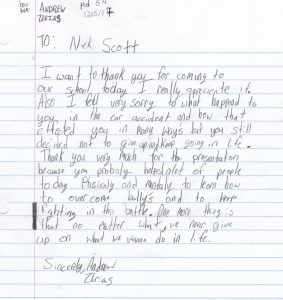 ANDREW
URIAS
TO: Nick Scott
I want to thank you for coming to
our school today I really appriciate it.
Also I feel very sorry to what happend to
you in the car accident and how that
effected you in many ways but you still
decided not to give up and keep going in life.
Thank you very much for the presentation
because you probaly helped alot of people
today Phisicaly and mentaly to learn how
to over come bullys and to keep
fighting in this battle. One more thing is
that no matter what, we never give
up on what we wanna do in life.
Sincerely, Andrew
Urias